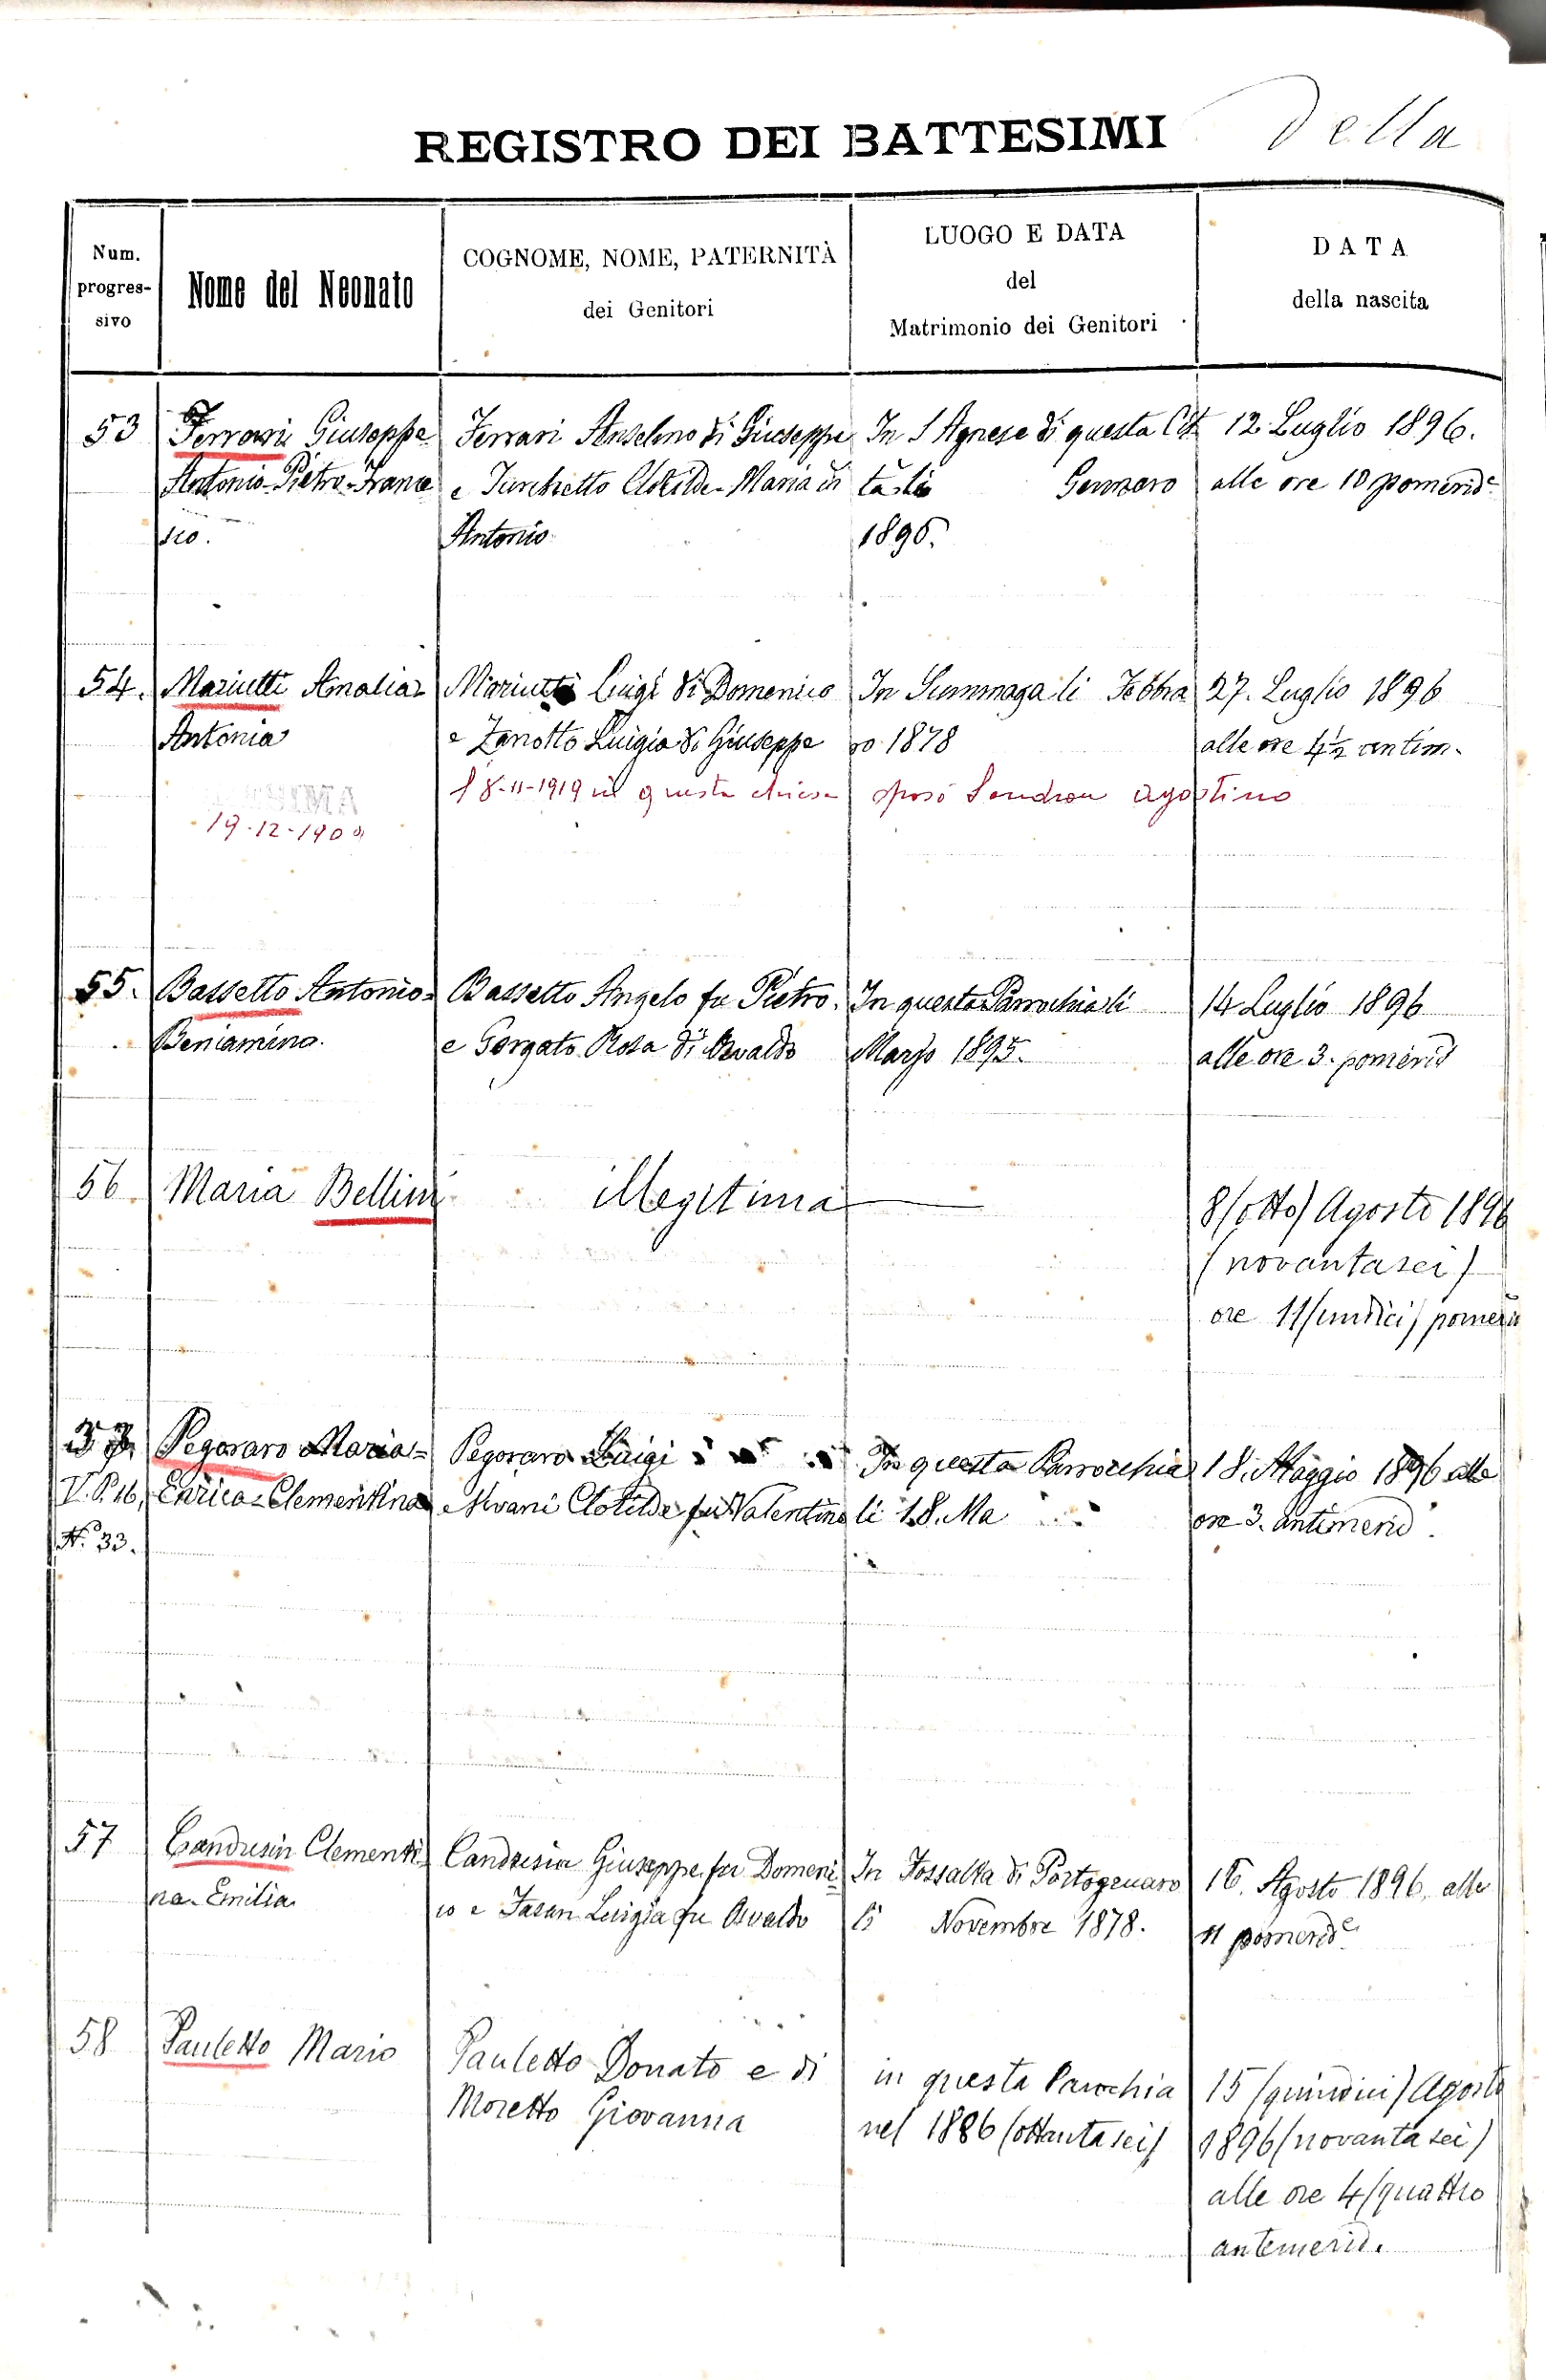 REGISTRO DEI BATTESIMI della
Num.
progres-
sivo
Nome del Neonato
COGNOME, NOME, PATERNITÀ
dei Genitori
LUOGO E DATA
del
Matrimonio dei Genitori
DATA
della nascita
53
Ferrari Giuseppe
Antonio-Pietro-France
sco.
Ferrari Anselmo di Giuseppe
e Turchetto Clotilde-Maria di
Antonio
In S Agnese di questa Cit
tà li Gennaro
1896.
12 Luglio 1896.
alle ore 10 pomerid.e
54.
Mariutti Amalia-
Antonia
19-12-1909
Mariutti Luigi di Domenico
e Zanotto Luigia di Giuseppe
In Summaga li Febbra
ro 1878
27. Luglio 1896
alle ore 4½ antim.
18-11-1919 in questa chiesa sposò Sandron Agostino
55.
Bassetto Antonio=
Beniamino.
Bassetto Angelo fu Pietro
e Gorgato Rosa di Osvaldo
In questa Parrochia li
Marzo 1895.
14 Luglio 1896
alle ore 3. pomerid
56.
Maria Bellini
illegitima
8 (otto) Agosto 1896
(novantasei)
ore 11 (undici) pomerid
57.
V. P. 16,
N.º 33.
Pegoraro Maria=
Enrica-Clementina
Pegoraro Luigi
e Clotilde fu Valentino
In questa Parrocchia
li 18. Ma
18. Maggio 1896 alle
ore 3. antimerid.
57
Candusin Clementi
na-Emilia
Candusin Giuseppe fu Domeni=
co e Fasan Luigia fu Osvaldo
In Fossalta di Portogruaro
li Novembre 1878.
16. Agosto 1896, alle
11 pomerid.e
58
Pauletto Mario
Pauletto Donato e di
Moretto Giovanna
in questa Parochia
nel 1886 (ottantasei)
15 (quindici) Agosto
1896 (novanta sei)
alle ore 4 (quattro
antemerid.